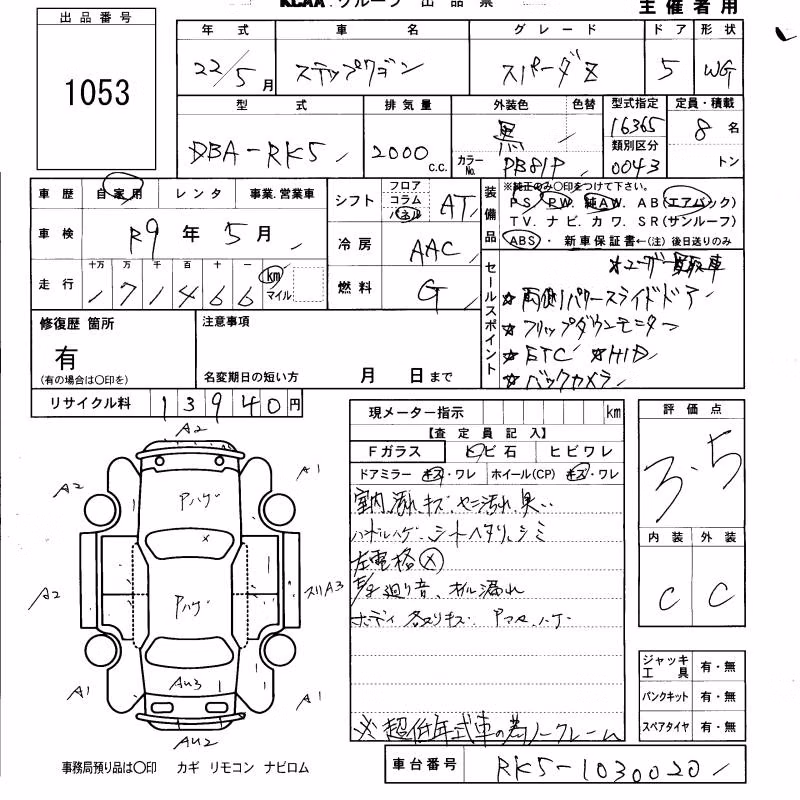 KCAA.グループ 出品票
主催者用
出品番号
1053
年式 車名 グレード ドア 形状
22/5月 ステップワゴン スパーダZ 5 WG
型式 排気量 外装色 色替 型式指定 定員・積載
DBA-RK5 2000 c.c. 黒 カラーNo. PB81P 16365 8名
類別区分 0043 トン
車歴 自家用 レンタ 事業.営業車
車検 R9年5月
走行 十万 万 千 百 十 一
171466 km マイル
シフト フロア コラム パネル AT
冷房 AAC
燃料 G
装備品 ※純正のみ○印をつけて下さい。
PS. PW. 純AW. AB(エアバック)
TV. ナビ. カワ. SR(サンルーフ)
ABS・ 新車保証書←(注)後日送りのみ
セールスポイント
☆ユーザー買取車
☆両側パワースライドドア
☆フリップダウンモニター
☆ETC ☆HID
☆バックカメラ
修復歴 箇所
有
(有の場合は○印を)
注意事項
名変期日の短い方 月 日まで
リサイクル料 13940円
現メーター指示 km
【査定員記入】
Fガラス トビ石 ヒビワレ
ドアミラー キズ・ワレ ホイール(CP) キズ・ワレ
室内汚れ、キズ、ヤニ汚れ、臭..
ハンドルハゲ、シートヘタリ、シミ
左電格(×)
廻り音、オイル漏れ
ボディ各ヌリキズ Pマタ、ハゲ
※超低年式車の為ノークレーム
評価点
3.5
内装 外装
C C
ジャッキ 工具 有・無
パンクキット 有・無
スペアタイヤ 有・無
A2
A2 Pハゲ A1
A2 Pハゲ スリA3
A1 AU3 A1
AU2
事務局預り品は○印 カギ リモコン ナビロム
車台番号 RK5-1030020